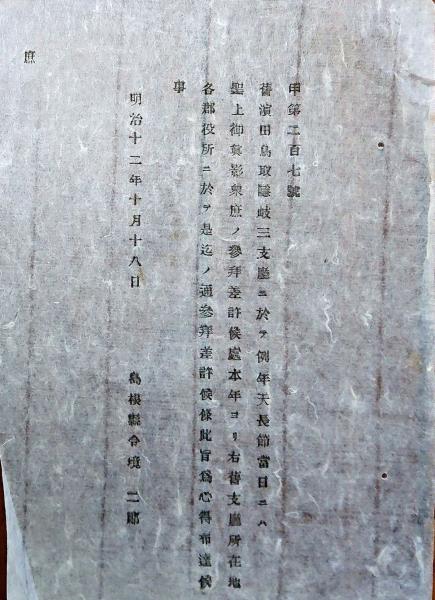 甲第二百七號
舊濱田鳥取隱岐三支廳ニ於テ例年天長節當日ニハ
聖上御眞影衆庶ノ參拜差許候處本年ヨリ右舊支廳所在地
各郡役所ニ於テ是迄ノ通參拜差許候條此旨爲心得布達候
事
明治十二年十月十八日
島根縣令境二郎
庶